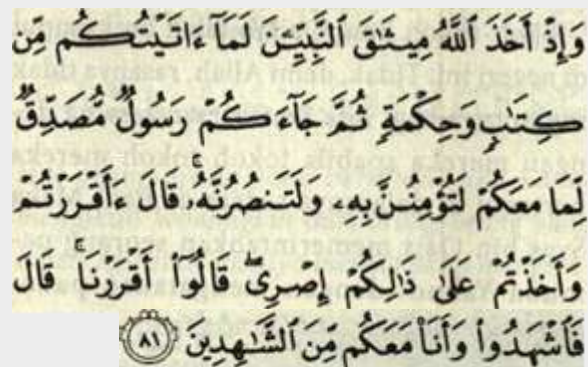 وَإِذْ أَخَذَ ٱللَّهُ مِيثَٰقَ ٱلنَّبِيِّـۧنَ لَمَآ ءَاتَيْتُكُم مِّن
كِتَٰبٍ وَحِكْمَةٍ ثُمَّ جَآءَكُمْ رَسُولٌ مُّصَدِّقٌ
لِّمَا مَعَكُمْ لَتُؤْمِنُنَّ بِهِۦ وَلَتَنصُرُنَّهُۥ قَالَ ءَأَقْرَرْتُمْ
وَأَخَذْتُمْ عَلَىٰ ذَٰلِكُمْ إِصْرِى ۖ قَالُوٓا۟ أَقْرَرْنَا ۚ قَالَ
فَٱشْهَدُوا۟ وَأَنَا۠ مَعَكُم مِّنَ ٱلشَّٰهِدِينَ ٨١